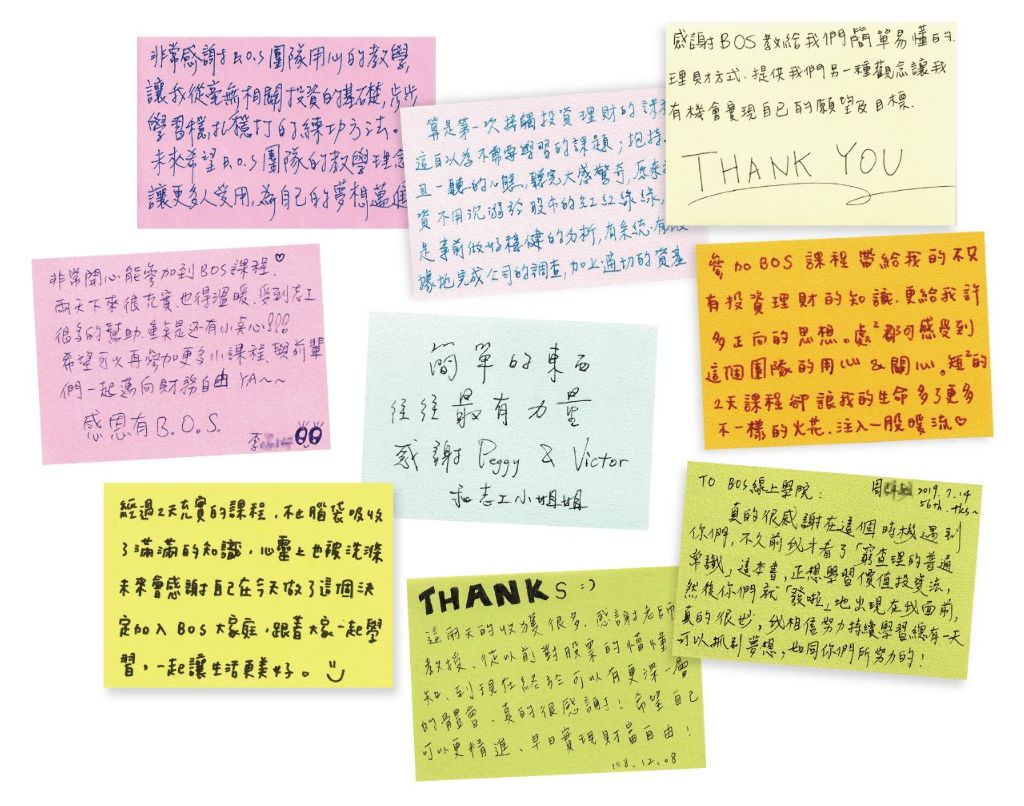 非常感謝 B.O.S團隊用心的教學,
讓我從毫無相關投資的基礎,步步
學習穩扎穩打的練功方法。
未來希望 B.O.S團隊的教學理念
讓更多人受用,為自己的夢想
算是第一次接觸投資理財的課程
這自以為不需要學習的課題;抱持
且一聽的心態,聽完大感驚奇,原來
資不用沉溺於股市的紅紅綠綠,
是事前做好穩健的分析,有系統有
據地完成公司的調查,加上適切的資產
感謝BOS教給我們簡單易懂的
理財方式.提供我們另一種觀念讓我
有機會實現自己的願望及目標.
THANK YOU
非常開心能參加到BOS課程.♡
兩天下來很充實.也得溫暖.受到志工
很多的幫助.重點是還有小點心!!!
希望可以再參加更多小課程,與前輩
們一起邁向財務自由 YA~~
感恩有 B.O.S.
李
簡單的東西
往往最有力量
感謝 Peggy & Victor
和志工小姐姐
參加BOS課程帶給我的不只
有投資理財的知識.更給我許
多正向的思想。處²都可感受到
這個團隊的用心&關心。短²的
2天課程卻讓我的生命多了更多
不一樣的火花.注入一股暖流♡
經過2天充實的課程,不止腦袋吸收
了滿滿的知識,心靈上也被洗滌
未來會感謝自己在今天做了這個決
定加入 BOS 大家庭,跟著大家一起學
習,一起讓生活更美好。
THANKS :)
這兩天的收獲很多.感謝老師
教授、從以前對股票的懵懂
知.到現在終於可以有更深一層
的體會、真的很感謝!希望自己
可以更精進、早日實現財富自由!
108.12.08
TO BOS線上學院:
周 2019.7.14
56th.
真的很感謝在這個時機遇到
你們,不久前我才看了「窮查理的普通
常識」這本書,正想學習價值投資法,
然後你們就「發啦」地出現在我面前,
真的很妙,我相信努力持續學習總有一天
可以抓到夢想,如同你們所努力的!